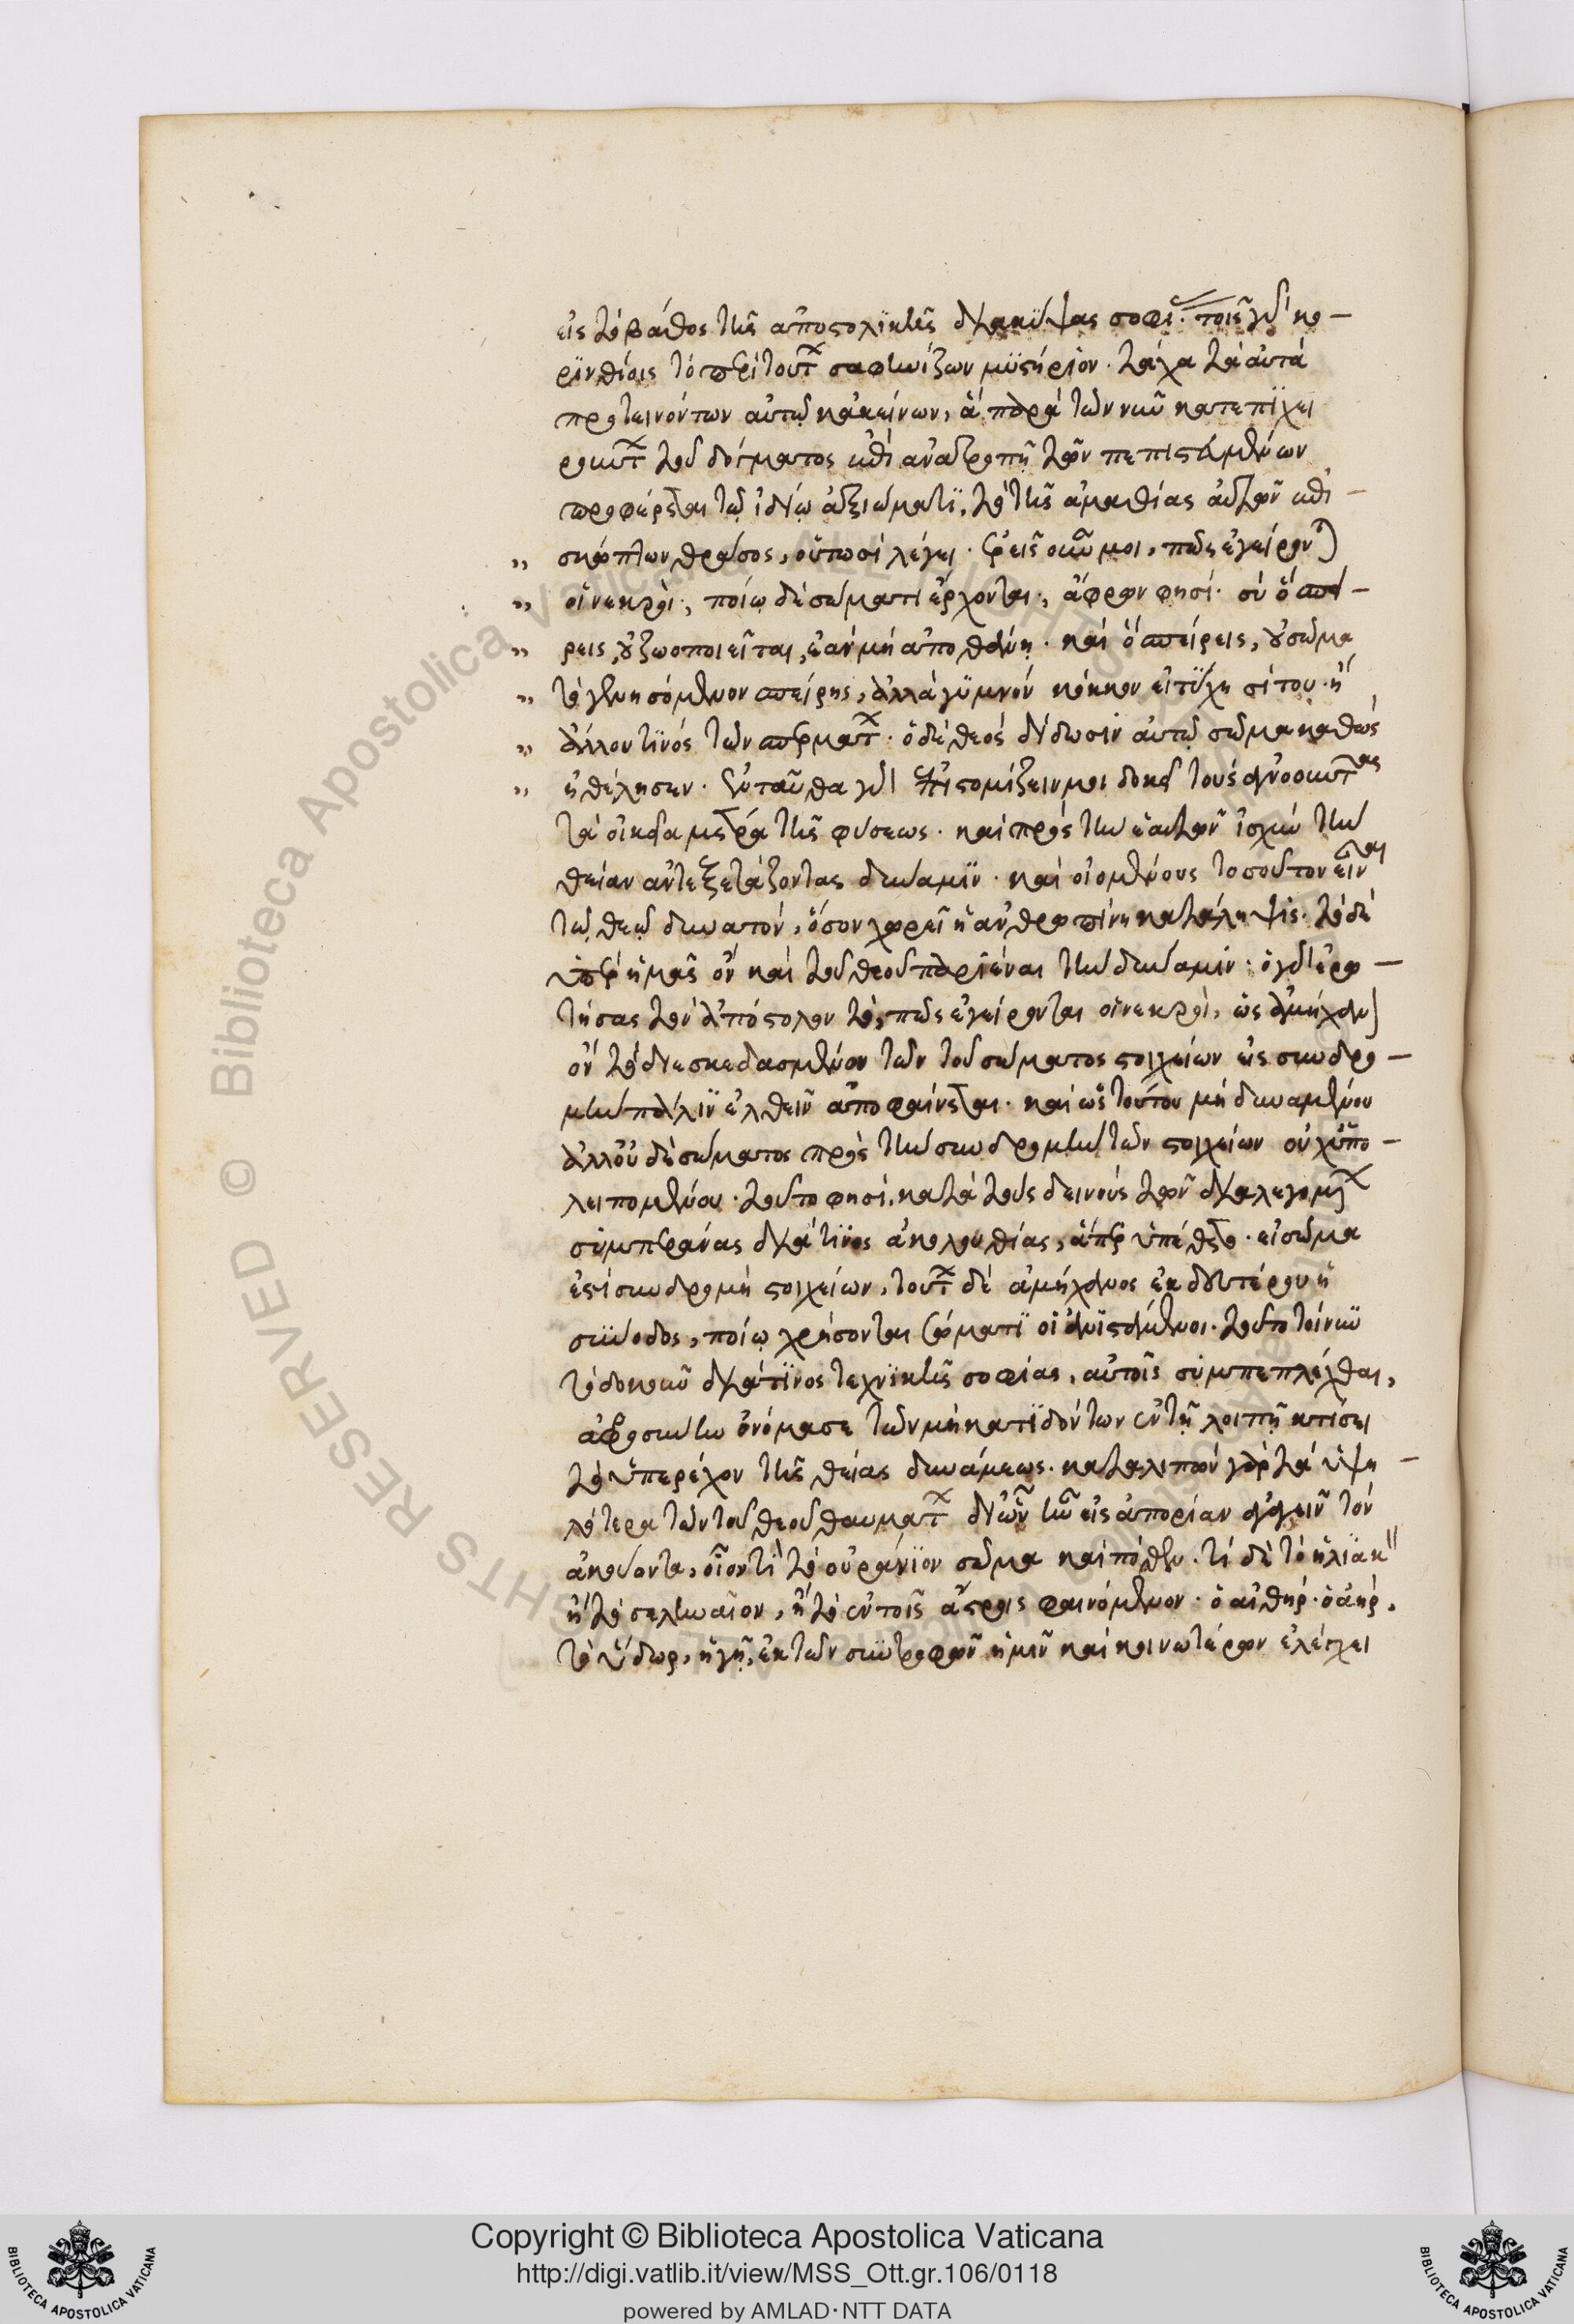 εἰς τὸ βάθος τῆς ἀποστολικῆς διακύψας σοφίας. τοῖς γὰρ κο-
ρινθίοις τὸ περὶ τούτου σαφηνίζων μυστήριον. τάχα τὰ αὐτὰ
προτεινόντων αὐτῷ κἀκείνων, ἃ παρὰ τῶν νῦν κατεπιχει
ρούντων τοῦ δόγματος ἐπὶ ἀνατροπῇ τῶν πεπιστευμένων
προφέρεται τῷ ἰδίῳ ἀξιώματι, τὸ τῆς ἀμαθίας αὐτῶν ἐπι-
σκώπτων θράσος, οὑτωσὶ λέγει. ἐρεῖς οὖν μοι, πῶς ἐγείρονται
οἱ νεκροὶ, ποίῳ δὲ σώματι ἔρχονται, ἄφρον φησὶ. σὺ ὃ σπεί-
ρεις, οὐ ζωοποιεῖται, ἐὰν μὴ ἀποθάνῃ. καὶ ὃ σπείρεις, οὐ σῶμα
τὸ γενησόμενον σπείρῃς, ἀλλὰ γυμνὸν κόκκον εἰ τύχῃ σίτου. ἢ
ἄλλου τινὸς τῶν σπερμάτων. ὁ δὲ θεὸς δίδωσιν αὐτῷ σῶμα καθὼς
ἠθέλησεν. ἐνταῦθα γὰρ ἐπιστομίζειν μοι δοκεῖ τοὺς ἀγνοοῦντας
τὰ οἰκεῖα μέτρα τῆς φύσεως. καὶ πρὸς τὴν ἑαυτῶν ἰσχὺν τὴν
θείαν ἀντεξετάζοντας δύναμιν. καὶ οἰομένους τοσοῦτον εἶναι
τῷ θεῷ δυνατὸν, ὅσον χωρεῖ ἡ ἀνθρωπίνη κατάληψις. τὸ δὲ
ὑπὲρ ἡμᾶς ὂν καὶ τοῦ θεοῦ παριέναι τὴν δύναμιν. ὁ γὰρ ἐρω-
τήσας τὸν ἀπόστολον τὸ, πῶς ἐγείρονται οἱ νεκροὶ, ὡς ἀμήχανον
ὂν τὸ διεσκεδασμένον τῶν τοῦ σώματος στοιχείων εἰς συνδρο-
μὴν πάλιν ἐλθεῖν ἀποφαίνεται. καὶ ὡς τούτου μὴ δυναμένου
ἄλλου δὲ σώματος πρὸς τὴν συνδρομὴν τῶν στοιχείων οὐχ ὑπο-
λειπομένου. τοῦτο φησὶ, κατὰ τοὺς δεινοὺς τῶν διαλεγομένων
συμπεράνας διά τινος ἀκολουθίας, ἅπερ ὑπέθετο. εἰ σῶμα
ἐστὶ συνδρομὴ στοιχείων, τούτων δὲ ἀμήχανος ἐκ δευτέρου ἡ
σύνοδος, ποίῳ χρήσονται σώματι οἱ ἀνιστάμενοι. τοῦτο τοίνυν
τὸ δοκοῦν διά τινος τεχνικῆς σοφίας, αὐτοῖς συμπεπλέχθαι,
ἀφροσύνην ὀνόμασε τῶν μὴ κατιδόντων ἐν τῇ λοιπῇ κτίσει
τὸ ὑπερέχον τῆς θείας δυνάμεως. καταλιπὼν γὰρ τὰ ὑψη-
λότερα τῶν τοῦ θεοῦ θαυμάτων δι' ὧν ἦν εἰς ἀπορίαν ἀγαγεῖν τὸν
ἀκούοντα, οἷον τί τὸ οὐράνιον σῶμα καὶ πόθεν. τί δὲ τὸ ἡλιακὸν
ἢ τὸ σεληναῖον, ἢ τὸ ἐν τοῖς ἄστροις φαινόμενον. ὁ αἰθὴρ. ὁ ἀὴρ,
τὸ ὕδωρ, ἡ γῆ, ἐκ τῶν συντρόφων ἡμῖν καὶ κοινωτέρων ἐλέγχει
Copyright © Biblioteca Apostolica Vaticana
http://digi.vatlib.it/view/MSS_Ott.gr.106/0118
powered by AMLAD·NTT DATA